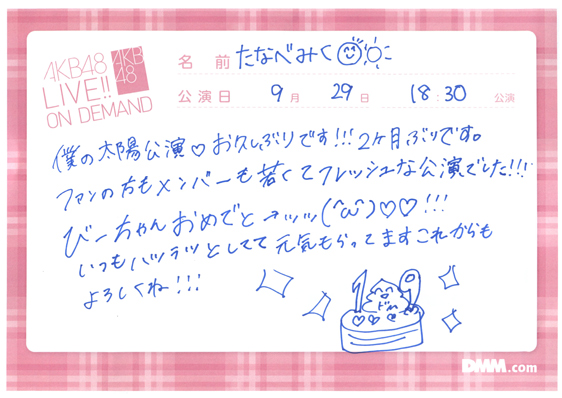 AKB48
LIVE!!
ON DEMAND
AKB
48
名 前 たなべみく
公演日 9月 29日 18:30 公演
僕の太陽公演♡お久しぶりです!!!2ヶ月ぶりです。
ファンの方もメンバーも若くてフレッシュな公演でした!!!
びーちゃんおめでと→ッッ(^ω^)♡♡!!!
いつもハツラツとしてて元気もらってますこれからも
よろしくね!!!
19
DMM.com